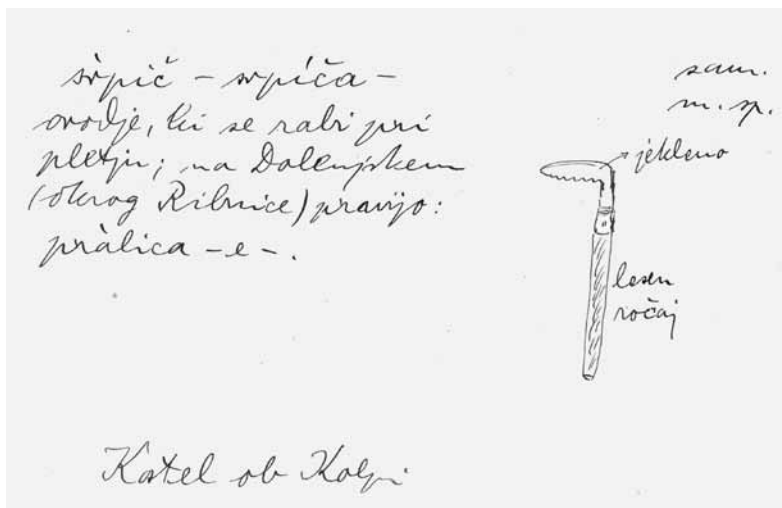 sŕpič – srpíča –
orodje, ki se rabi pri
pletju; na Dolenjskem
(okrog Ribnice) pravijo:
prȁlica –e–.
sam.
m. sp.
jekleno
lesen
ročaj
Kostel ob Kolpi